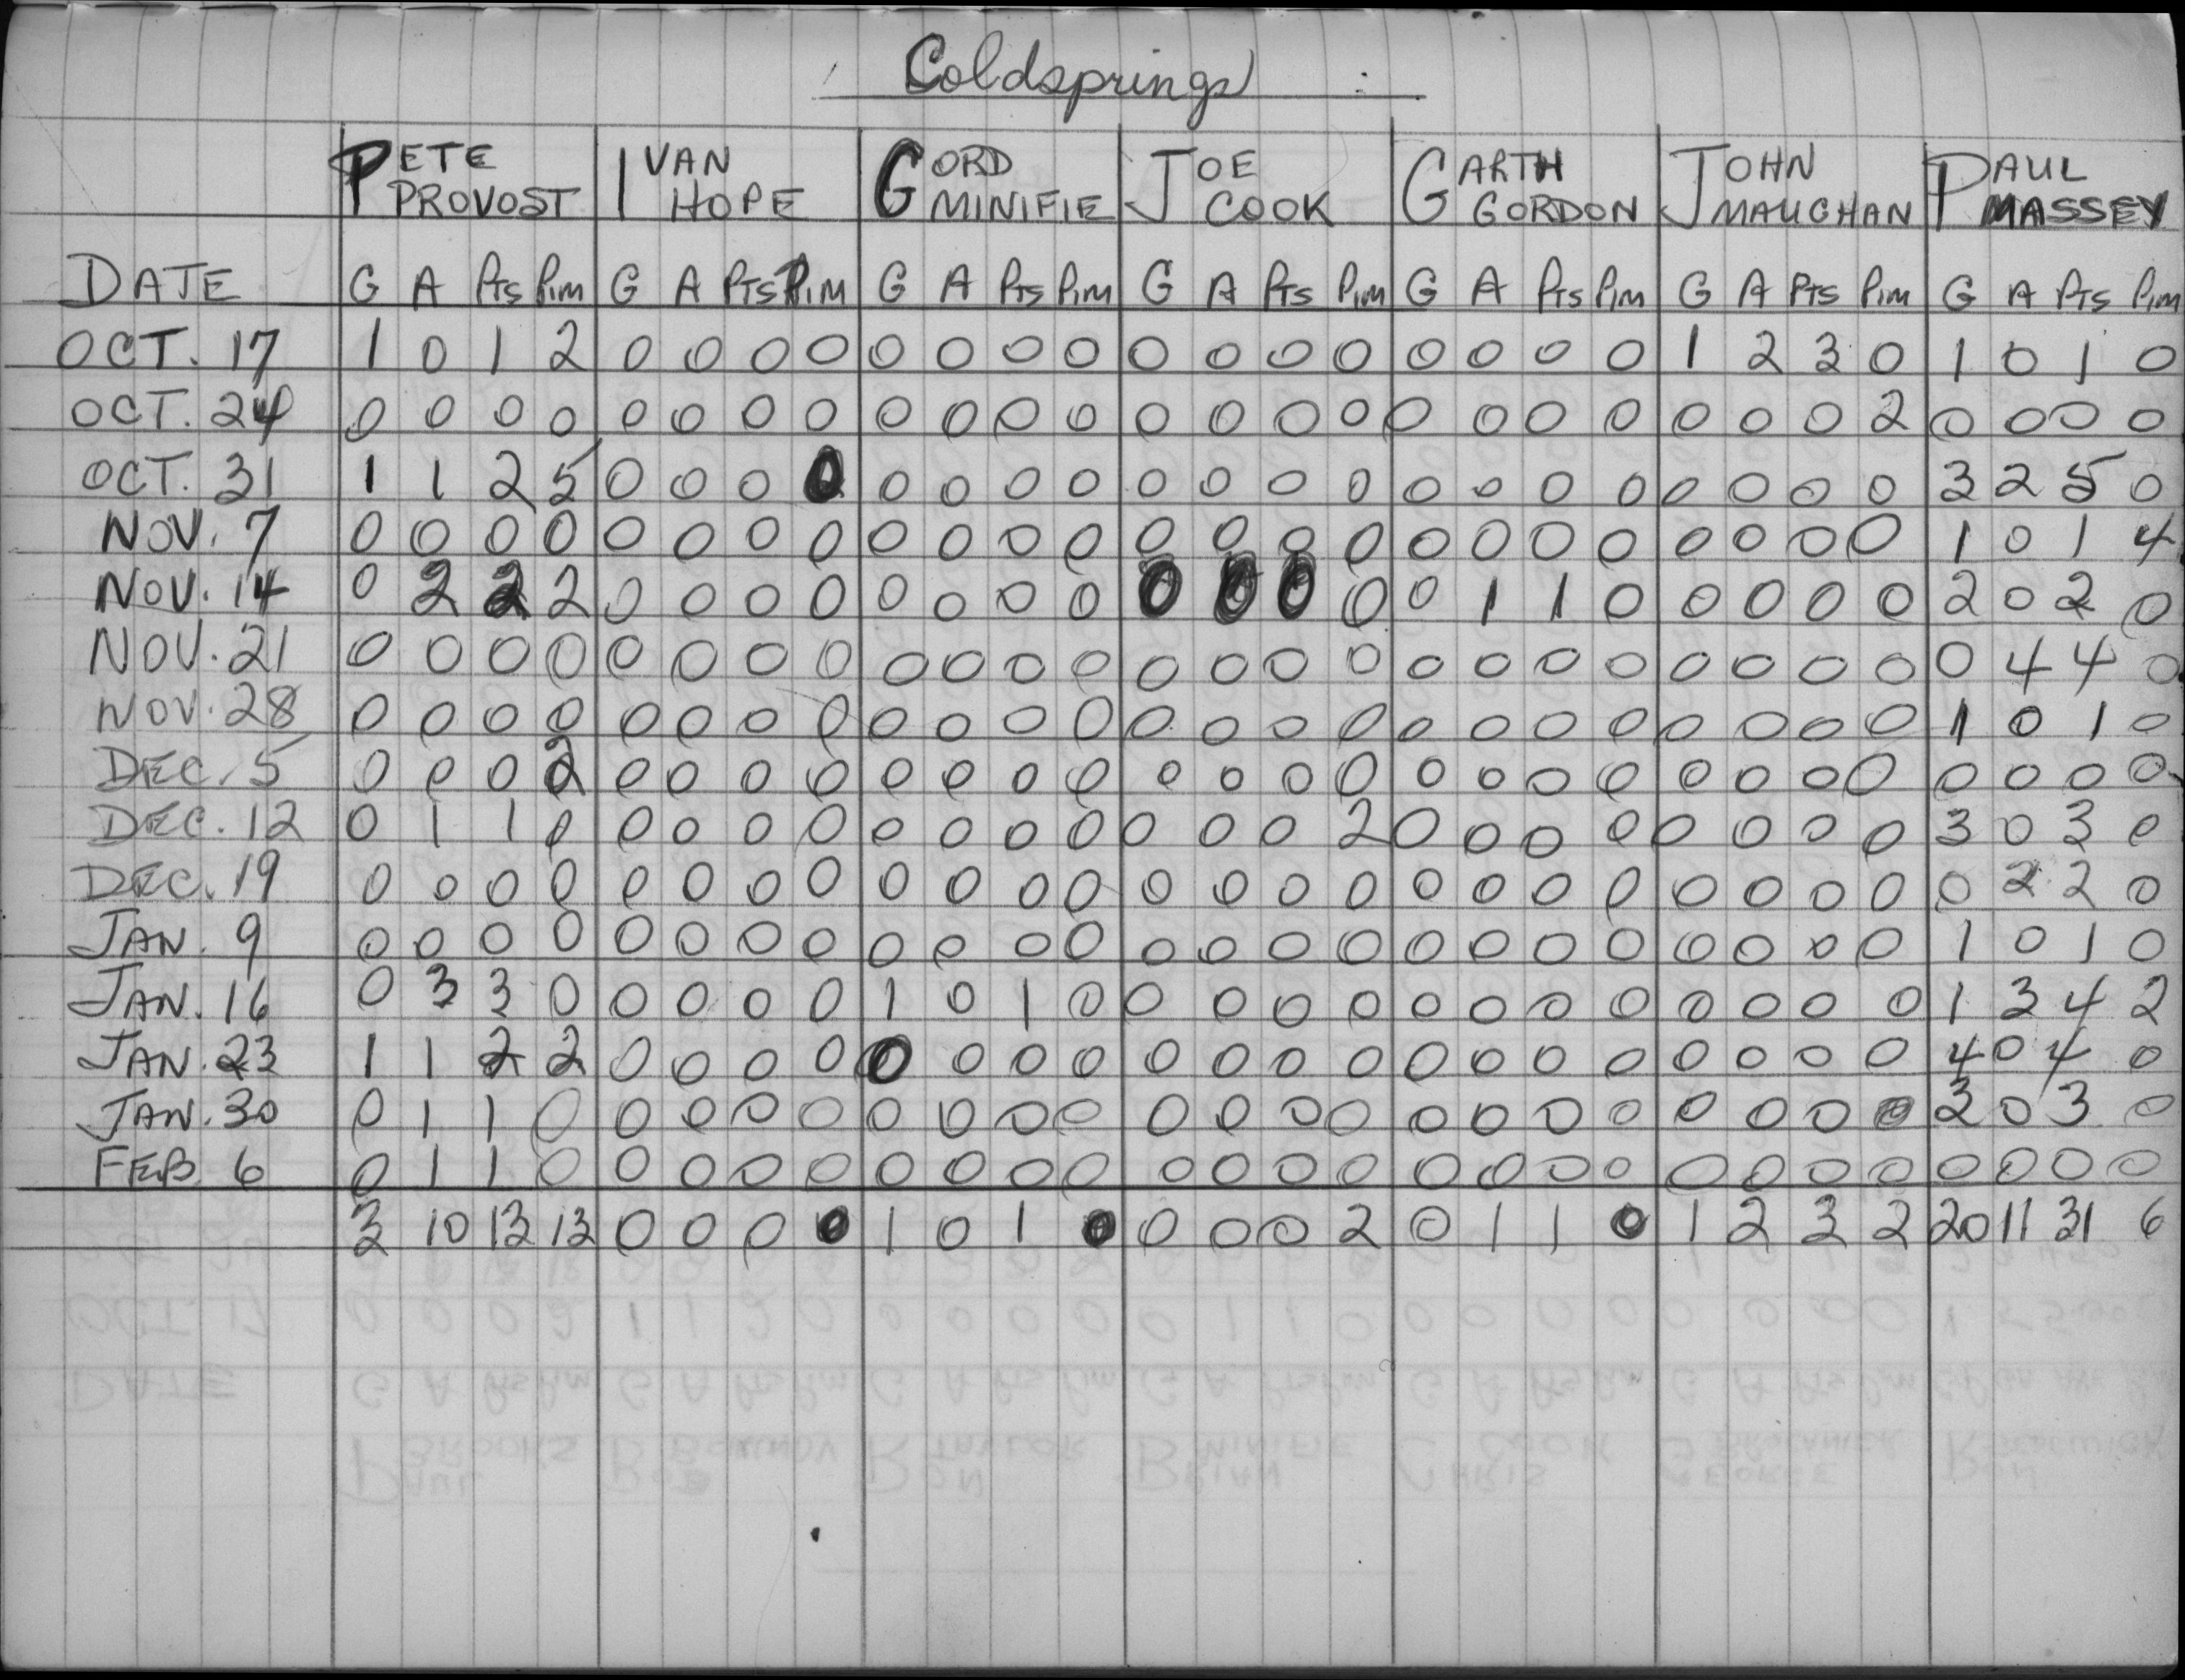 Coldsprings
PETE PROVOST IVAN HOPE GORD MINIFIE JOE COOK GARTH GORDON JOHN MAUGHAN PAUL MASSEY
DATE G A Pts Pim G A Pts Pim G A Pts Pim G A Pts Pim G A Pts Pim G A Pts Pim G A Pts Pim
OCT. 17 1 0 1 2 0 0 0 0 0 0 0 0 0 0 0 0 0 0 0 0 1 2 3 0 1 0 1 0
OCT. 24 0 0 0 0 0 0 0 0 0 0 0 0 0 0 0 0 0 0 0 0 0 0 0 2 0 0 0 0
OCT. 31 1 1 2 5 0 0 0 0 0 0 0 0 0 0 0 0 0 0 0 0 0 0 0 0 3 2 5 0
NOV. 7 0 0 0 0 0 0 0 0 0 0 0 0 0 0 0 0 0 0 0 0 0 0 0 0 1 0 1 4
NOV. 14 0 2 2 2 0 0 0 0 0 0 0 0 0 0 0 0 0 1 1 0 0 0 0 0 2 0 2 0
NOV. 21 0 0 0 0 0 0 0 0 0 0 0 0 0 0 0 0 0 0 0 0 0 0 0 0 0 4 4 0
NOV. 28 0 0 0 0 0 0 0 0 0 0 0 0 0 0 0 0 0 0 0 0 0 0 0 0 1 0 1 0
DEC. 5 0 0 0 2 0 0 0 0 0 0 0 0 0 0 0 0 0 0 0 0 0 0 0 0 0 0 0 0
DEC. 12 0 1 1 0 0 0 0 0 0 0 0 0 0 0 0 2 0 0 0 0 0 0 0 0 3 0 3 0
DEC. 19 0 0 0 0 0 0 0 0 0 0 0 0 0 0 0 0 0 0 0 0 0 0 0 0 0 2 2 0
JAN. 9 0 0 0 0 0 0 0 0 0 0 0 0 0 0 0 0 0 0 0 0 0 0 0 0 1 0 1 0
JAN. 16 0 3 3 0 0 0 0 0 1 0 1 0 0 0 0 0 0 0 0 0 0 0 0 0 1 3 4 2
JAN. 23 1 1 2 2 0 0 0 0 0 0 0 0 0 0 0 0 0 0 0 0 0 0 0 0 4 0 4 0
JAN. 30 0 1 1 0 0 0 0 0 0 0 0 0 0 0 0 0 0 0 0 0 0 0 0 0 3 0 3 0
FEB. 6 0 1 1 0 0 0 0 0 0 0 0 0 0 0 0 0 0 0 0 0 0 0 0 0 0 0 0 0
3 10 13 13 0 0 0 0 1 0 1 0 0 0 0 2 0 1 1 0 1 2 3 2 20 11 31 6